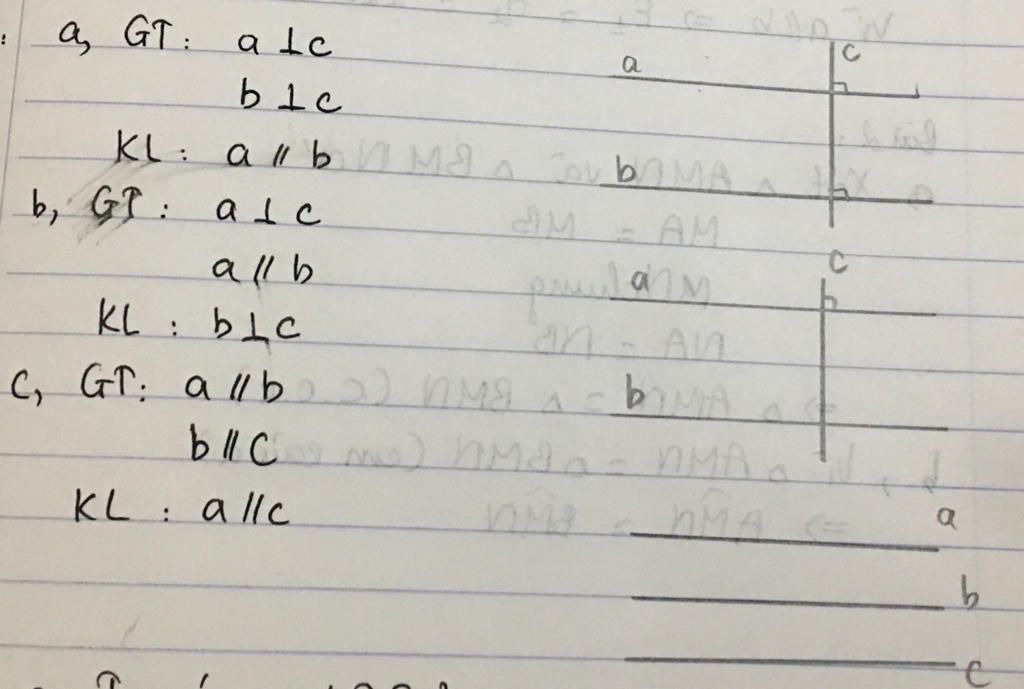 a, GT: a ⊥ c
b ⊥ c
KL: a // b
b, GT: a ⊥ c
a // b
KL: b ⊥ c
c, GT: a // b
b // c
KL: a // c
a
c
b
c
a
b
a
b
c